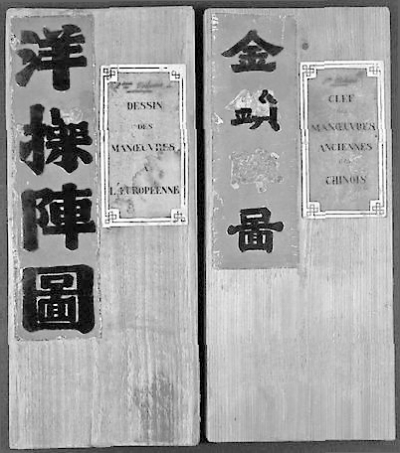 洋操陣圖
DESSIN
DES
MANŒUVRES
A
L'EUROPÉENNE
金鎖圖
CLEF
MANŒUVRES
ANCIENNES
CHINOIS